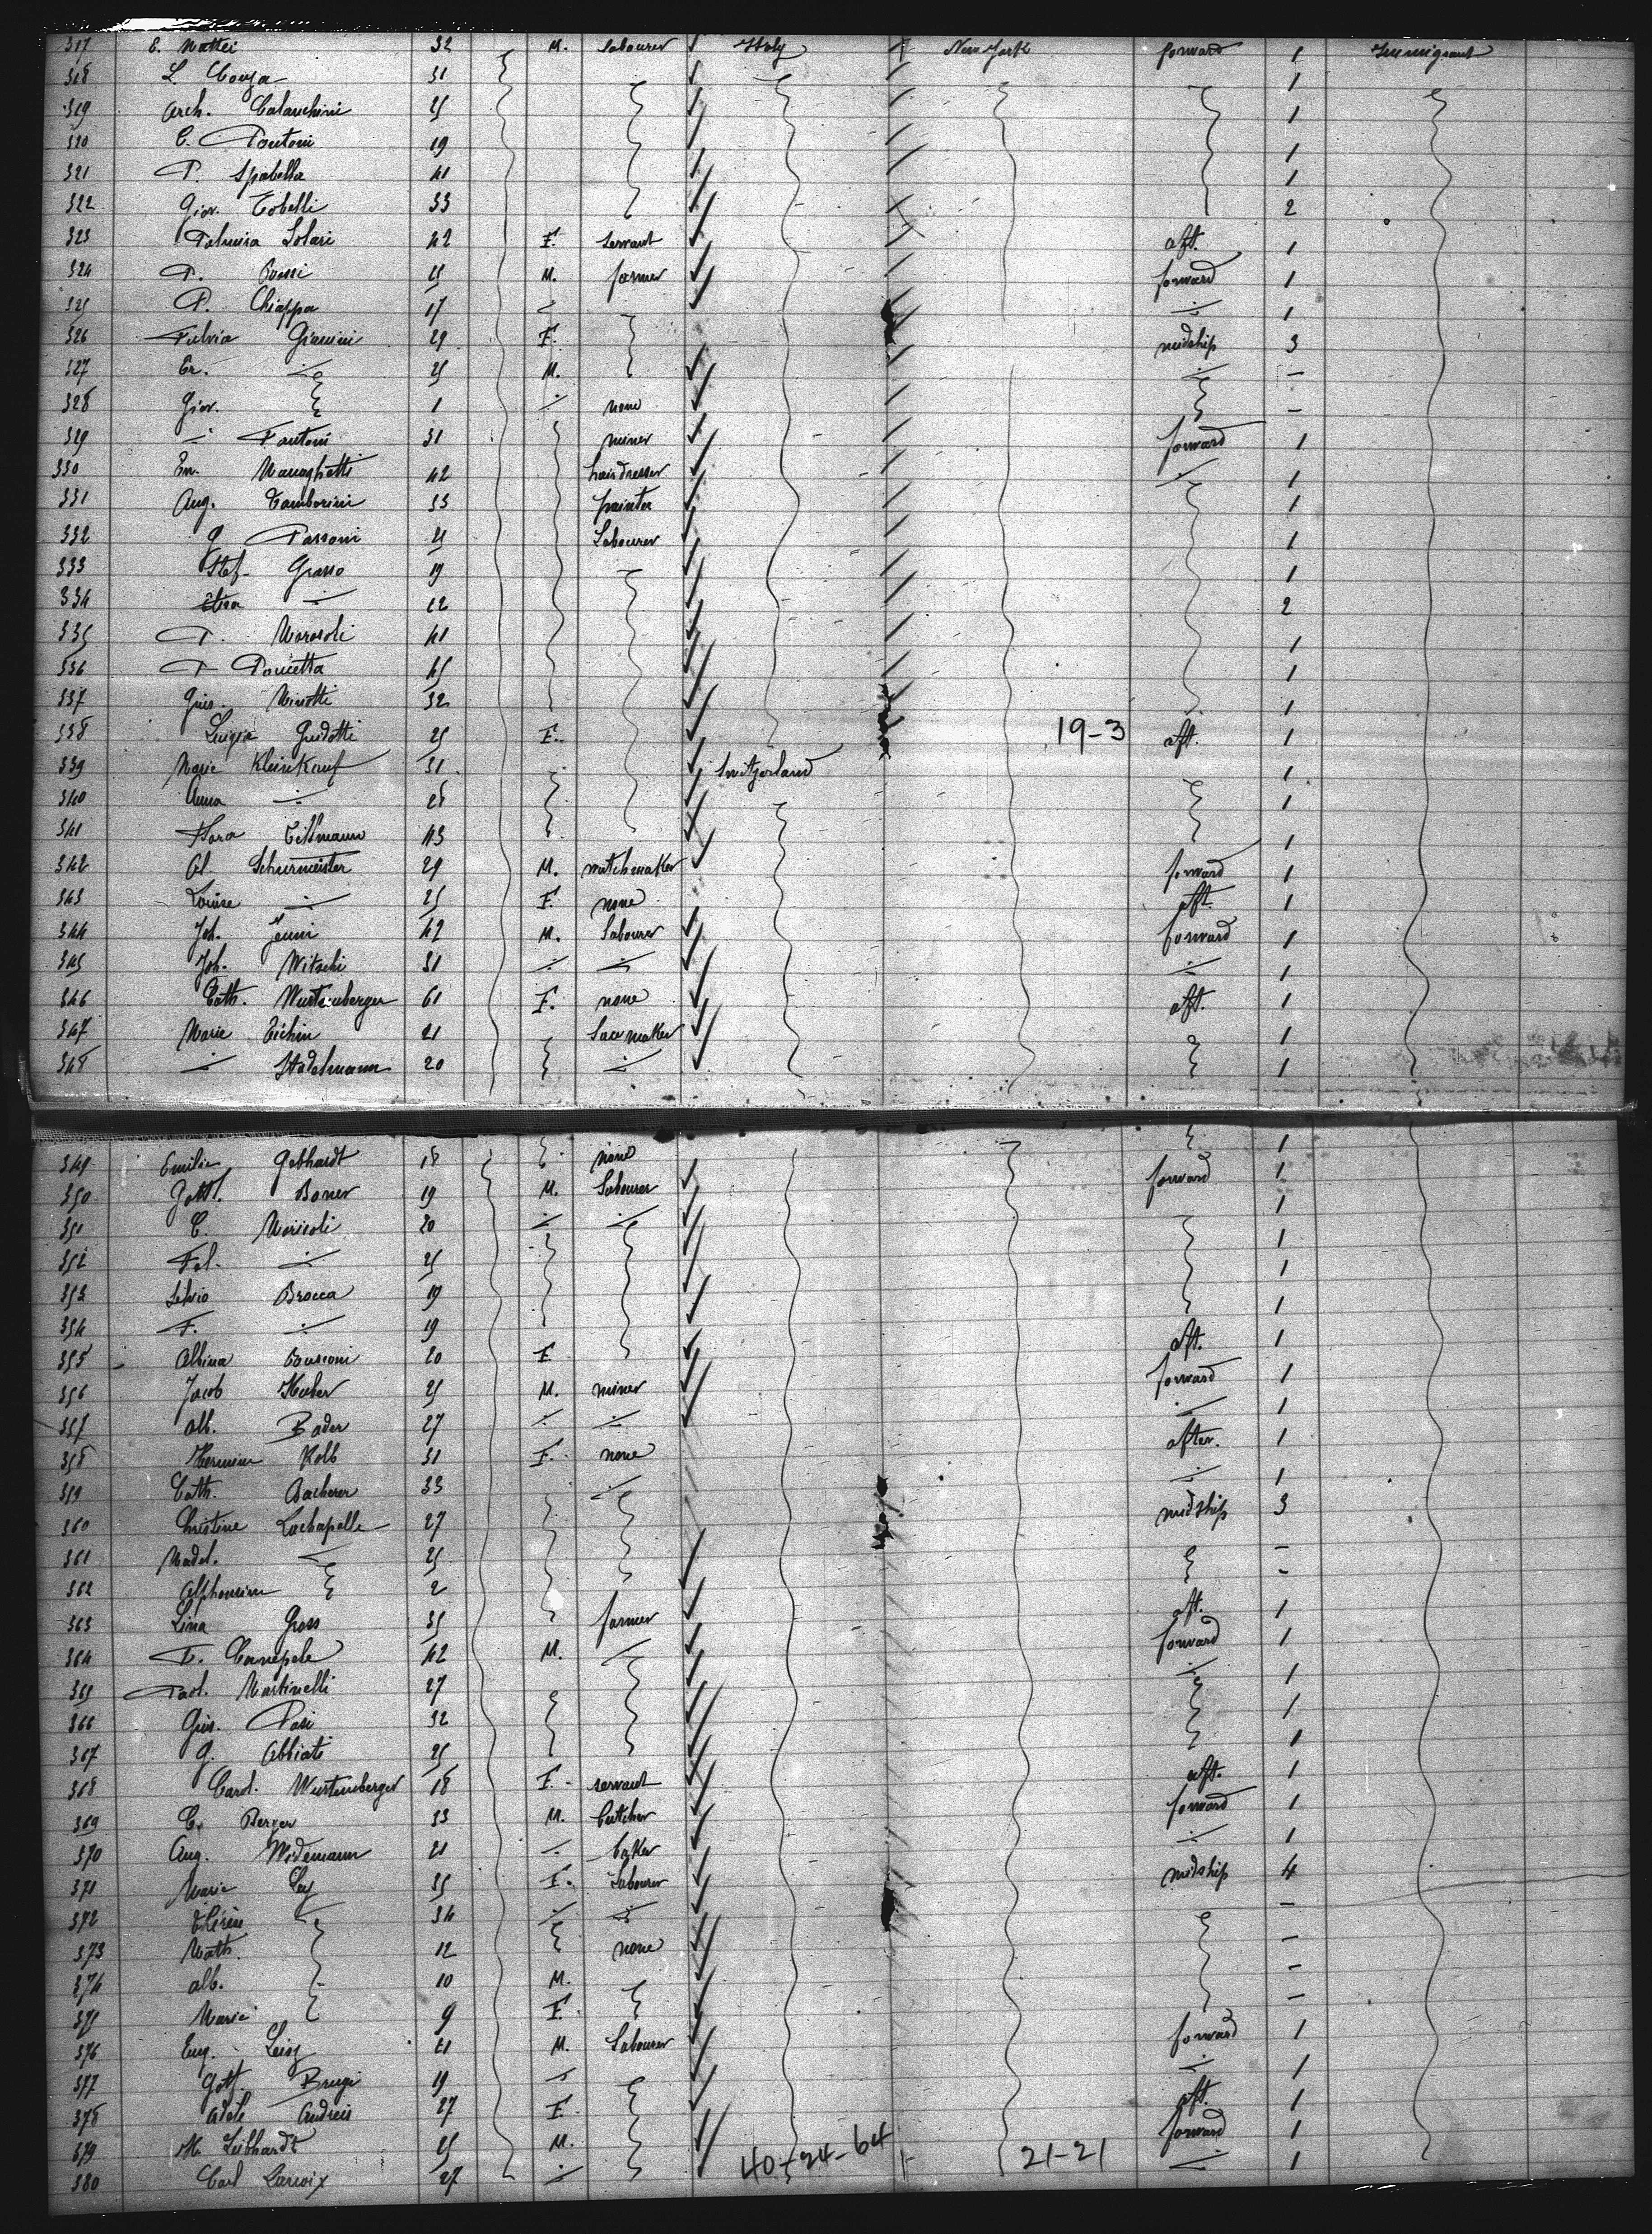 317 E. Mattei 32 M. Labourer Italy New York forward 1 Immigrant
318 L. Couza 31 1
319 Arch. Calanchini 25 1
320 C. Pontoni 19 1
321 P. Spabella 41 1
322 Giov. Tobelli 33 2
323 Palmira Solari 42 F. servant aft. 1
324 P. 25 M. farmer forward 1
325 P. Chiappa 17 " 1
326 Fulvia Gianini 29 F. midship 3
327 Er. " 25 M. " -
328 Giov. 1 " none -
329 " Fantoni 31 miner forward 1
330 Em. Managhetti 42 hairdresser " 1
331 Aug. Tamborini 33 painter 1
332 G Passoni 21 Labourer 1
333 Stef. Grasso 19 1
334 Elisa " 22 2
335 P. Morosoli 41 1
336 P Poncetta 45 1
337 Gius. Minotti 32 1
338 Luigia Guidotti 25 F. 19-3 aft. 1
339 Marie Kleinkauf 31 Switzerland 1
340 Anna " 28 1
341 Flora Tissmann 43 1
342 Al. Schurmeister 29 M. watchmaker forward 1
343 Louise " 25 F. none aft. 1
344 Joh. Jenni 42 M. Labourer forward 1
345 Joh. Witschi 31 " " " 1
346 Cath. Wurtenberger 61 F. none aft. 1
347 Marie Eichin 21 Lace maker 1
348 " Stadelmann 20 " 1
349 Emilie Gebhardt 18 none 1
350 Gottl. Boner 19 M. Labourer forward 1
351 C. Morisoli 20 " " 1
352 Fel. " 25 1
353 Silvio Brocca 19 1
354 F. " 19 1
355 Albina 20 F aft. 1
356 Jacob Huber 25 M. miner forward 1
357 Alb. Bader 27 " " " 1
358 Hermine Kolb 31 F. none after. 1
359 Cath. Bacherer 33 " " 1
360 Christine Lachapelle 27 midship 3
361 Madel. " 25 -
362 Alphonsine 2 -
363 Lina Gross 35 farmer aft. 1
364 F. Canepele 42 M. " forward 1
365 Paol. Martinelli 27 " 1
366 Gius. Pasi 32 1
367 G. Abbiati 25 1
368 Carol. Wurtenberger 18 F. servant aft. 1
369 C. Berger 33 M. butcher forward 1
370 Aug. Widemann 21 " baker " 1
371 Marie Ley 35 F. Labourer midship 4
372 Thérèse 34 " " -
373 Math. 12 none -
374 Alb. 10 M. -
375 Marie 9 F. -
376 Eug. 21 M. Labourer forward 1
377 Gotf. Brugi 19 " " 1
378 Adele Andreis 27 F. aft. 1
379 M Leibhardt 25 M. forward 1
380 Carl Larroix 27 " 40-24-64 21-21 " 1